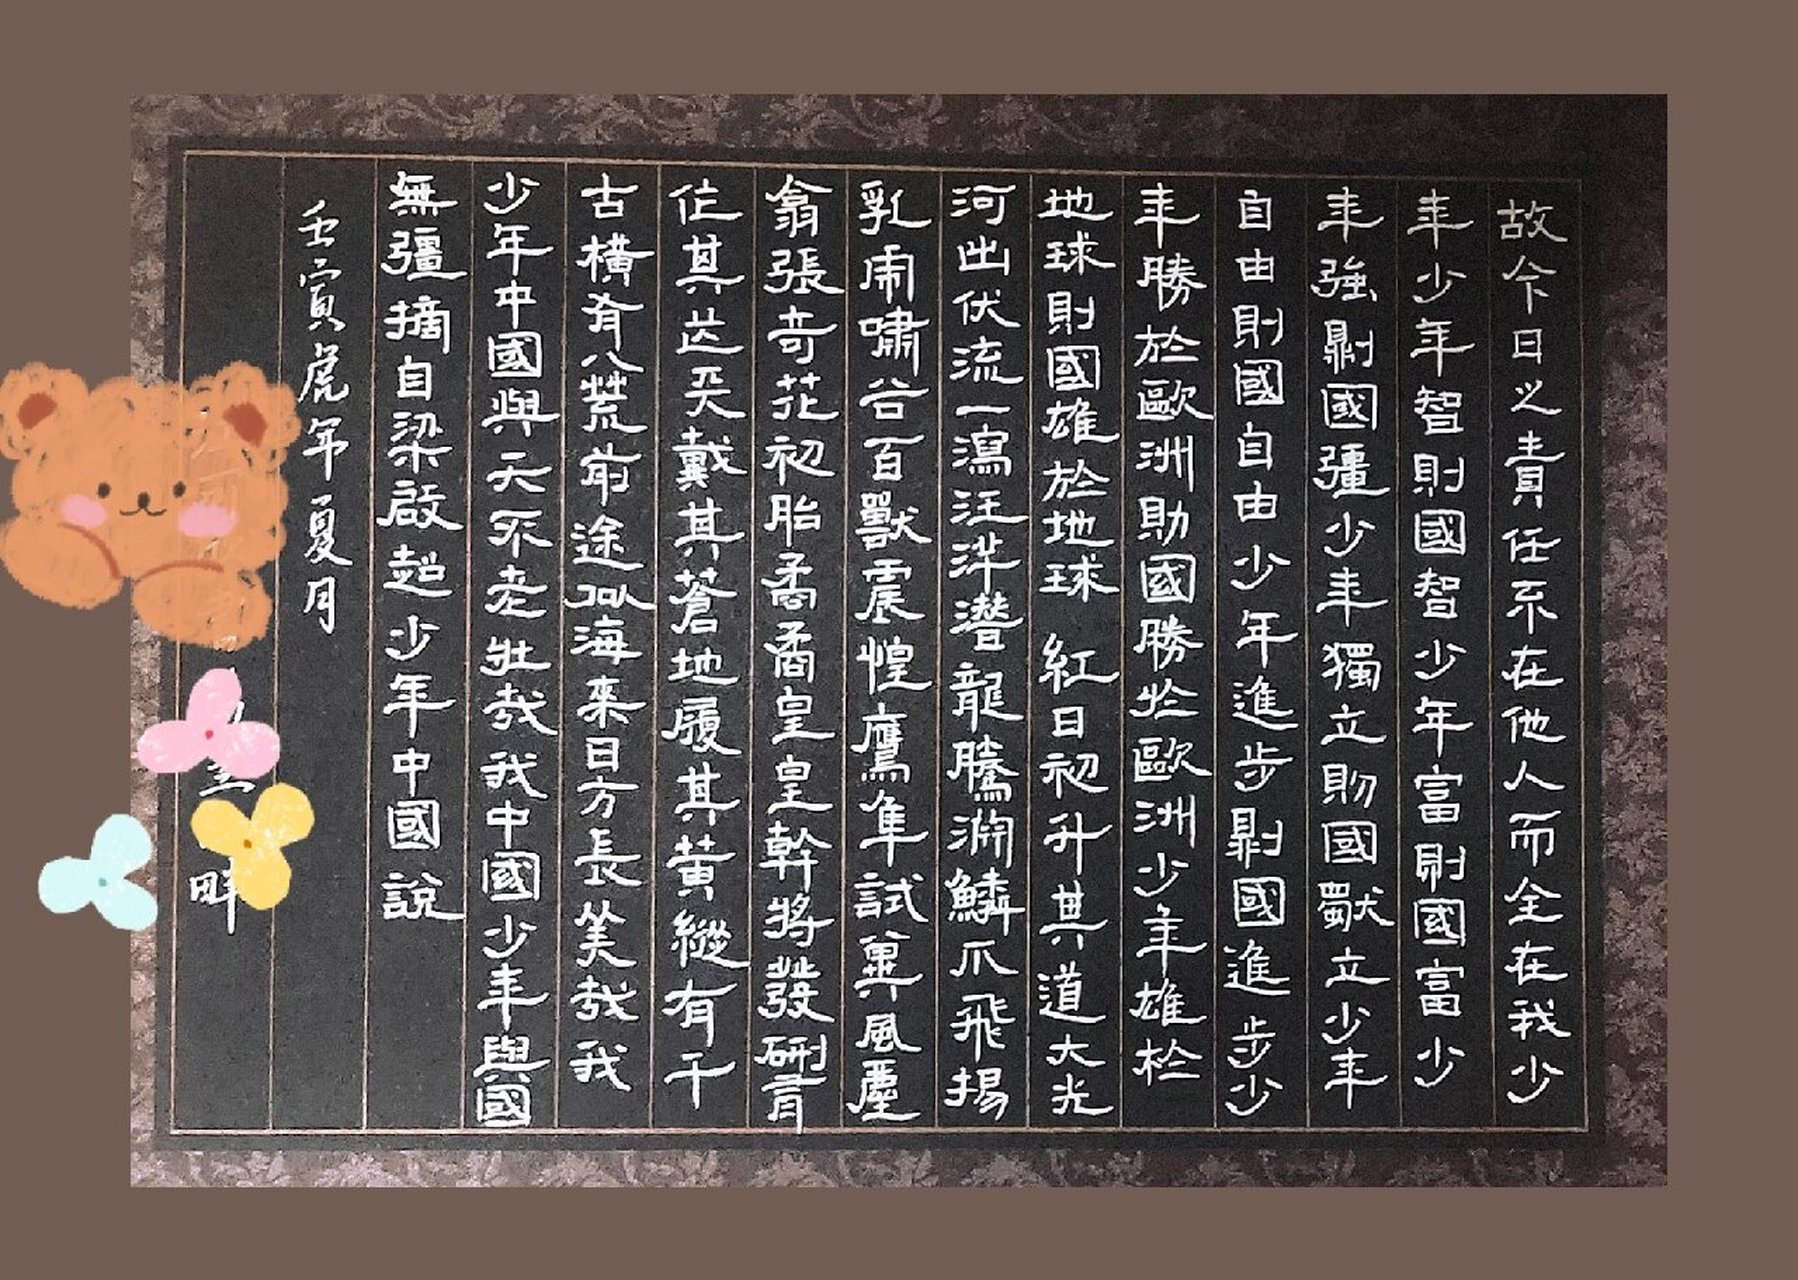 故今日之責任不在他人而全在我少
年少年智則國智少年富則國富少
年強則國彊少年獨立則國獨立少年
自由則國自由少年進步則國進步少
年勝於歐洲則國勝於歐洲少年雄於
地球則國雄於地球 紅日初升其道大光
河出伏流一瀉汪洋潛龍騰淵鱗爪飛揚
乳虎嘯谷百獸震惶鷹隼試翼風塵
翕張奇花初胎矞矞皇皇幹將發硎有
作其芒天戴其蒼地履其黃縱有千
古橫有八荒前途似海來日方長美哉我
少年中國與天不老壯哉我中國少年與國
無彊摘自梁啟超少年中國說
壬寅虎年夏月
畔